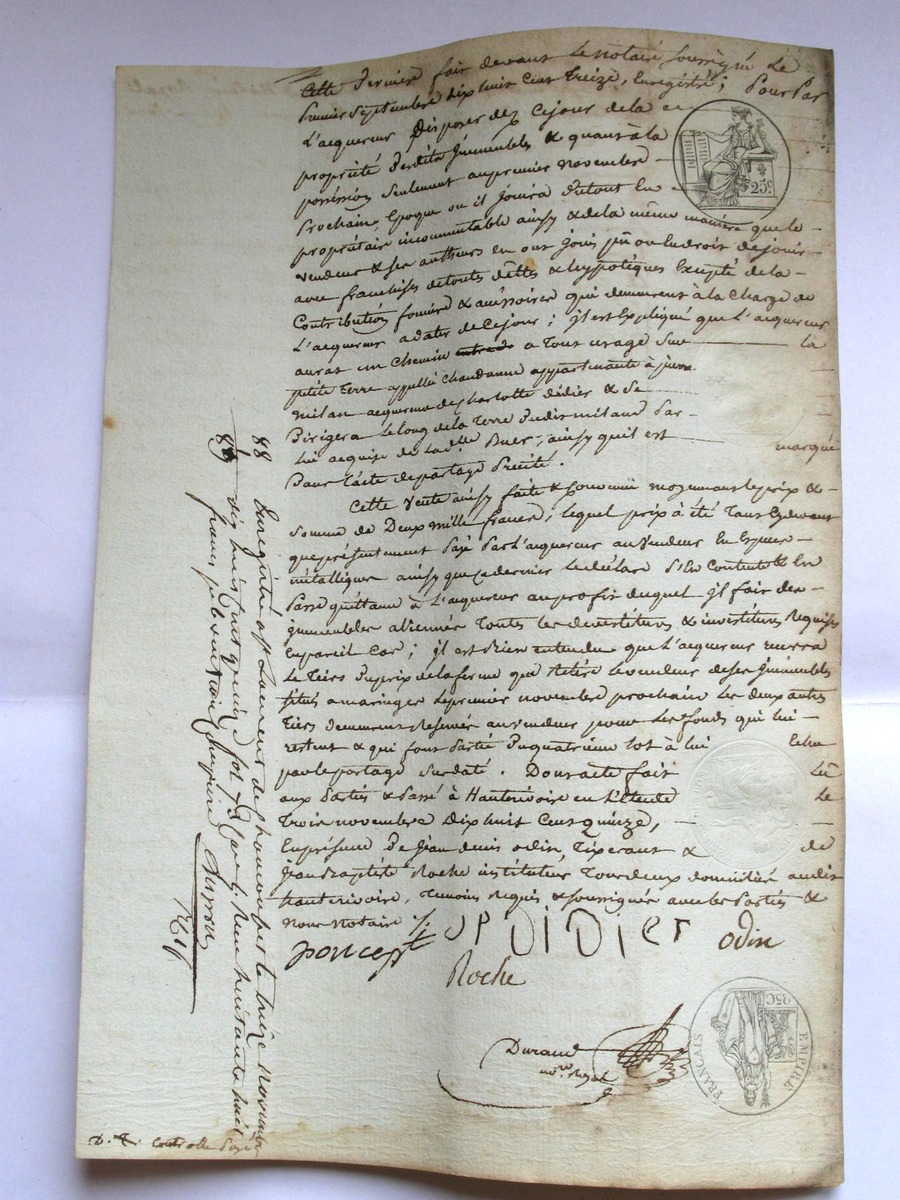 Cette Derniere fait devant le notaire soussigné Le
Premier Septembre dix huit Cent Treize, Enregistré; Pour Par
L'acquereur Disposer dez Cejour de la
propriété Desdits Immeubles & quant à la
possession Seulement au premier novembre
Prochain, Epoque ou il Jouira dutout En
propriétaire incommutable ainsy & de la même manière que le
vendeur & ses autheurs en ont Joüis pû ou le droit de joüir
avec franchises de toutes dettes & hyppotèques Excepté de la
Contribution fonciere & accéssoires qui demeurent à la charge de
L'acquereur a dater de Cejour; il est Expliqué que L'acquereur
aurat un chemin a Tout usage Sur la
petite Terre appellée Chaudanne appartenante à
milan acquereur de Charlotte didier & Se
Dirigera Le long de la Terre Dudit milan Par
lui acquise de la d.lle Buer, ainsy quil est marqué
Dans l'acte de partage Précité.
Cette Vente ainsy faite & Convenüe moyennant le prix &
Somme de Deux mille francs, lequel prix à été Tout
que présentement Payé Par L'acquereur au Vendeur En Especes
métalliques ainsy que ce dernier le déclare S'en Contente & En
Passe quittance à L'acquereur au profit duquel il fait des
immeubles aliennés Toutes les devestitures & investitures Requises
En pareil Cas; il est Bien entendu que L'acquereur
Le Tiers Du prix de la ferme que Retire le vendeur de ses Immeubles
situés a maringes le premier novembre prochain Les deux autres
Tiers demeurent Reservés au vendeur pour Les fonds qui lui
restent & qui font Partie Du quatrieme lot à lui Echu
par le partage Sus daté. Dont acte fait Lû
aux Parties & Passé à Hauterivoire en L'Etude Le
Trois novembre Dix huit Cent Quinze,
En présence De Jean denis odin, Tixerant & de
Jean Baptiste Roche instituteur Tous deux domiciliés audit
hauterivoire, Temoins Requis & soussignés avec les Parties &
Nous Notaire ./.
poncept JP DiDier odin
Roche
Durand
no.re Royal
25c
EMPIRE FRANÇAIS
25C
88 Enregistré a St Laurent de Chamousset le treize novembre
89 dix huit cent quinze
francs
D. T. Controlle Payé